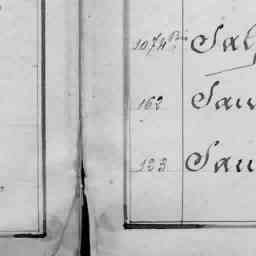 1074 Bis Sal
162 Sau
123 Sau